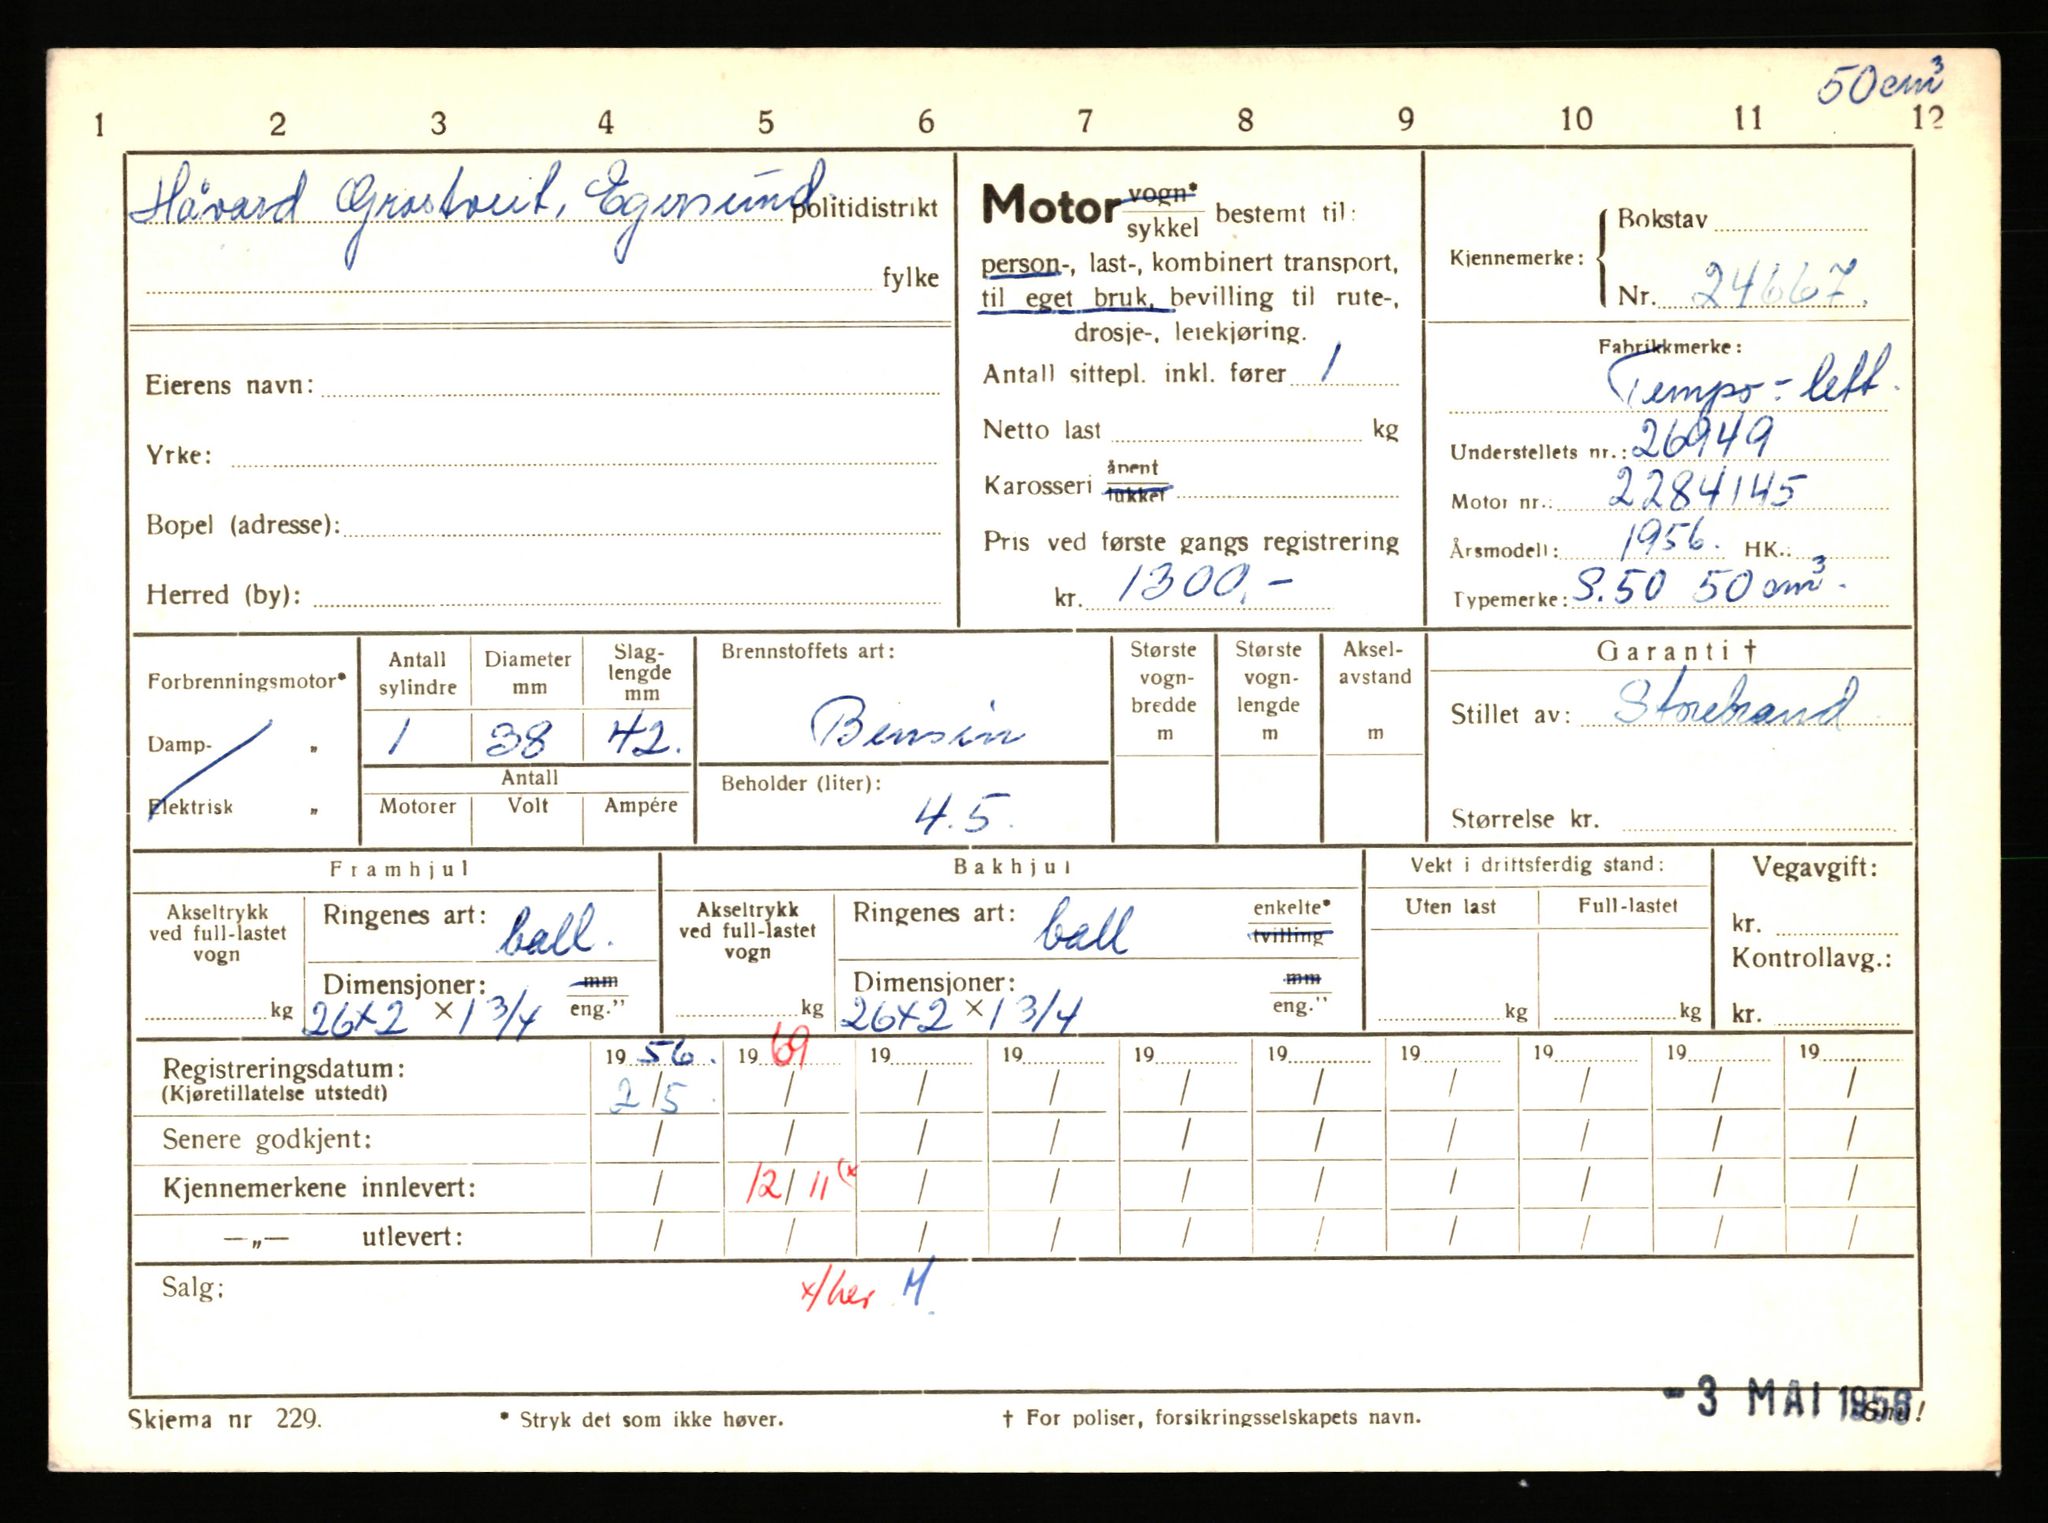 50 cm³
1 2 3 4 5 6 7 8 9 10 11 12
Håvard Grastveit, Egersund politidistrikt
fylke
Eierens navn:
Yrke:
Bopel (adresse):
Herred (by):
Motor vogn* sykkel bestemt til:
person-, last-, kombinert transport,
til eget bruk, bevilling til rute-,
drosje-, leiekjøring.
Antall sittepl. inkl. fører 1
Netto last kg
Karosseri åpent lukket
Pris ved første gangs registrering
kr. 1300,-
Kjennemerke: Bokstav
Nr. 24667.
Fabrikkmerke:
Tempo - lett.
Understellets nr.: 26949
Motor nr.: 2284145
Årsmodell: 1956. HK.:
Typemerke: S.50 50 cm³.
Forbrenningsmotor*
Damp- „
Elektrisk „
Antall sylindre Diameter mm Slag-lengde mm
1 38 42.
Antall
Motorer Volt Ampére
Brennstoffets art:
Bensin
Beholder (liter):
4.5.
Største vogn-bredde m
Største vogn-lengde m
Aksel-avstand m
Garanti †
Stillet av: Storebrand
Størrelse kr.
Framhjul
Akseltrykk ved full-lastet vogn
kg
Ringenes art: ball.
Dimensjoner: mm eng.”
26x2 x 1 3/4
Bakhjul
Akseltrykk ved full-lastet vogn
kg
Ringenes art: ball enkelte* tvilling
Dimensjoner: mm eng.”
26x2 x 1 3/4
Vekt i driftsferdig stand:
Uten last Full-lastet
kg kg
Vegavgift:
kr.
Kontrollavg.:
kr.
Registreringsdatum: 19 56. 19 69 19 19 19 19 19 19 19 19
(Kjøretillatelse utstedt) 2/5 / / / / / / / / /
Senere godkjent: / / / / / / / / / /
Kjennemerkene innlevert: / 12/11 (x / / / / / / / /
—„— utlevert: / / / / / / / / / /
Salg:
x/her M.
-3 MAI 1956
Skjema nr 229. * Stryk det som ikke høver. † For poliser, forsikringsselskapets navn. Snu!